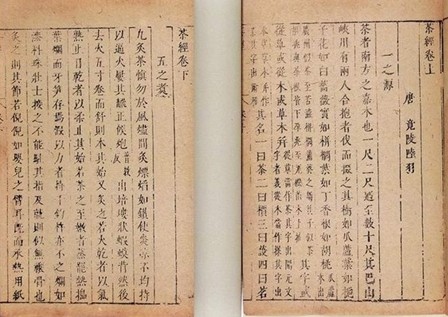 茶經卷上
唐 竟陵陸羽
一之源
茶者南方之嘉木也一尺二尺迺至數十尺其巴山
峽川有兩人合抱者伐而掇之其樹如瓜蘆葉如梔
子花如白薔薇實如栟櫚葉如丁香根如胡桃 瓜蘆木出
廣州似茶至苦澀栟櫚蒲葵之屬其子似茶
從草或從木或草木并
其名一曰茶二曰檟三曰蔎四曰茗
茶經卷下
五之煮
凡炙茶慎勿於風燼間炙熛焰如鑽使炎涼不均持
以逼火屢其翻正候炮出培塿狀蝦蟆背然後
去火五寸卷而舒則本其始又炙之若火乾者以氣
熟止日乾者以柔止其始若茶之至嫩者蒸罷熱搗
葉爛而牙笋存焉假以力者持千鈞杵亦不之爛如
漆科珠壯士接之不能駐其指及就則似無穰骨也
炙之則其節若倪倪如嬰兒之臂耳既而承熱用紙